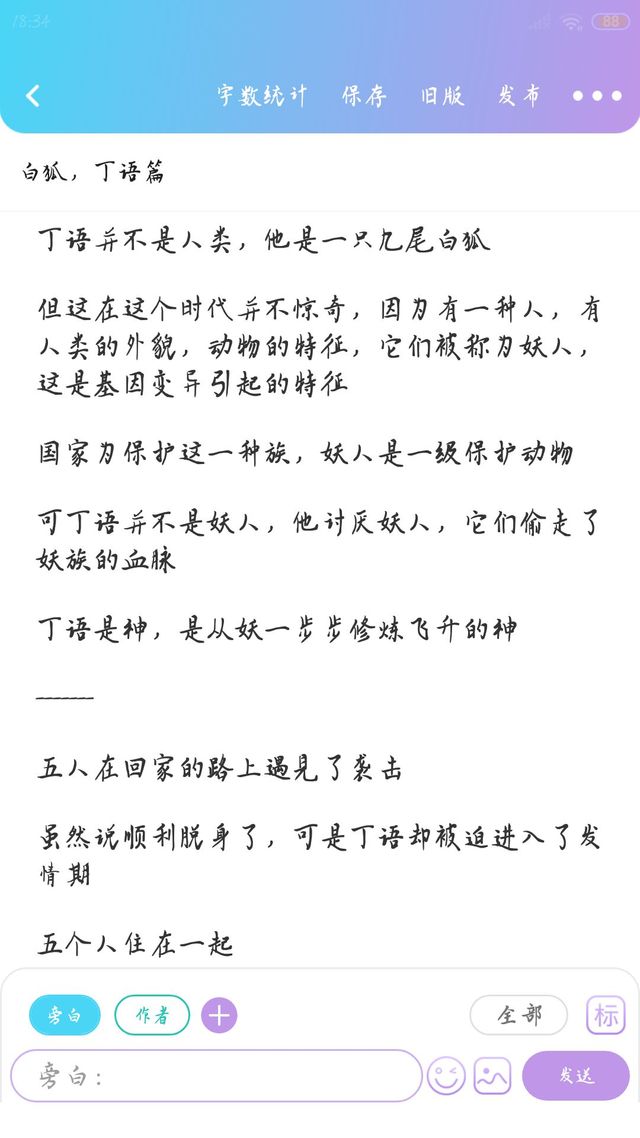 18:34
88
字数统计 保存 旧版 发布
白狐，丁语篇
丁语并不是人类，他是一只九尾白狐
但这在这个时代并不惊奇，因为有一种人，有
人类的外貌，动物的特征，它们被称为妖人，
这是基因变异引起的特征
国家为保护这一种族，妖人是一级保护动物
可丁语并不是妖人，他讨厌妖人，它们偷走了
妖族的血脉
丁语是神，是从妖一步步修炼飞升的神
———
五人在回家的路上遇见了袭击
虽然说顺利脱身了，可是丁语却被迫进入了发
情期
五个人住在一起
旁白 作者 全部 标
旁白： 发送